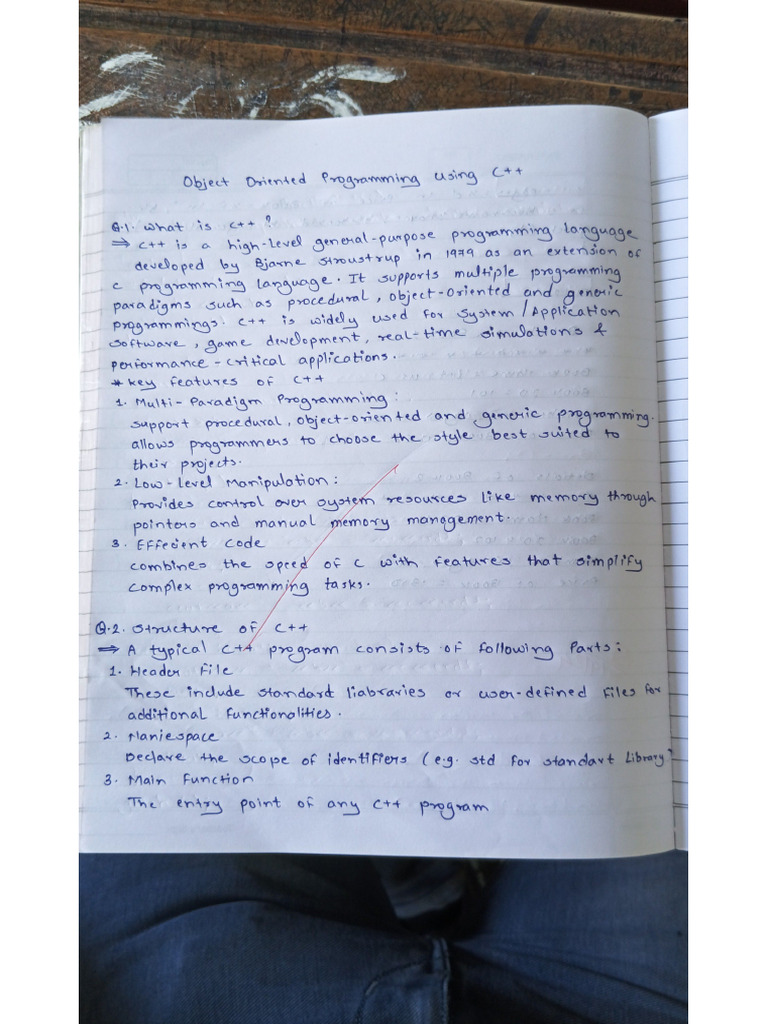 Object Oriented Programming using C++
Q.1. What is C++ ?
⇒ C++ is a high-level general-purpose programming language
developed by Bjarne Stroustrup in 1979 as an extension of
C programming language. It supports multiple programming
paradigms such as procedural, object-oriented and generic
programmings. C++ is widely used for System/Application
Software, game development, real-time simulations &
performance-critical applications.
* Key features of C++
1. Multi-Paradigm Programming :
Support procedural, object-oriented and generic programming.
allows programmers to choose the style best suited to
their projects.
2. Low-level Manipulation :
Provides control over system resources like memory through
pointers and manual memory management.
3. Effecient Code
Combines the speed of C with features that simplify
complex programming tasks.
Q.2. Structure of C++
⇒ A typical C++ program consists of following Parts :
1. Header File
These include standard liabraries or user-defined files for
additional functionalities.
2. Naniespace
Declare the scope of identifiers (e.g. std for standart Library)
3. Main Function
The entry point of any C++ program